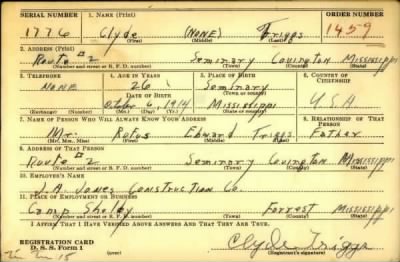 SERIAL NUMBER 1. NAME (Print) ORDER NUMBER
1776 Clyde (NONE) Triggs 1459
(First) (Middle) (Last)
2. ADDRESS (Print)
Route #2 Seminary Covington Mississippi
(Number and street or R. F. D. number) (Town) (County) (State)
3. TELEPHONE 4. AGE IN YEARS 5. PLACE OF BIRTH 6. COUNTRY OF CITIZENSHIP
NONE 26 Seminary
DATE OF BIRTH (Town or county)
October 6, 1914 Mississippi U.S.A
(Exchange) (Number) (Mo.) (Day) (Yr.) (State or country)
7. NAME OF PERSON WHO WILL ALWAYS KNOW YOUR ADDRESS RELATIONSHIP OF THAT PERSON
Mr. Rofus Edward Triggs Father
(Mr., Mrs., Miss) (First) (Middle) (Last)
8. ADDRESS OF THAT PERSON
Route #2 Seminary Covington Mississippi
(Number and street or R. F. D. number) (Town) (County) (State)
10. EMPLOYER'S NAME
J.A. Jones Construction Co.
11. PLACE OF EMPLOYMENT OR BUSINESS
Camp Shelby Forrest Mississippi
(Number and street or R. F. D. number) (Town) (County) (State)
I AFFIRM THAT I HAVE VERIFIED ABOVE ANSWERS AND THAT THEY ARE TRUE.
REGISTRATION CARD
D. S. S. Form 1 Clyde Triggs
(over) (Registrant's signature)